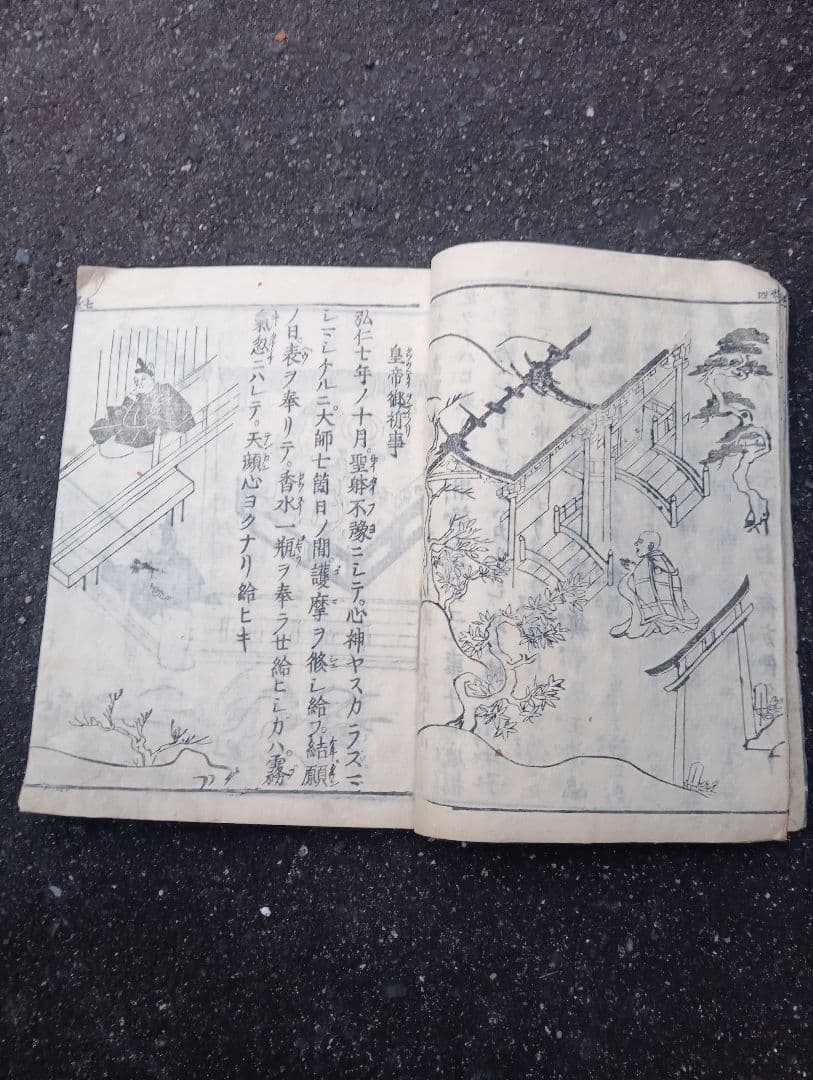 皇帝御祈事
弘仁七年ノ十月。聖躰不豫ニシテ。心神ヤスカラズマ
シマシケルニ大師七箇日ノ間護摩ヲ修シ給フ。結願
ノ日。表ヲ奉リテ。香水一瓶ヲ奉ラせ給ヒシカハ霧
氣忽ニハレテ。天顔心ヨクナリ給ヒキ